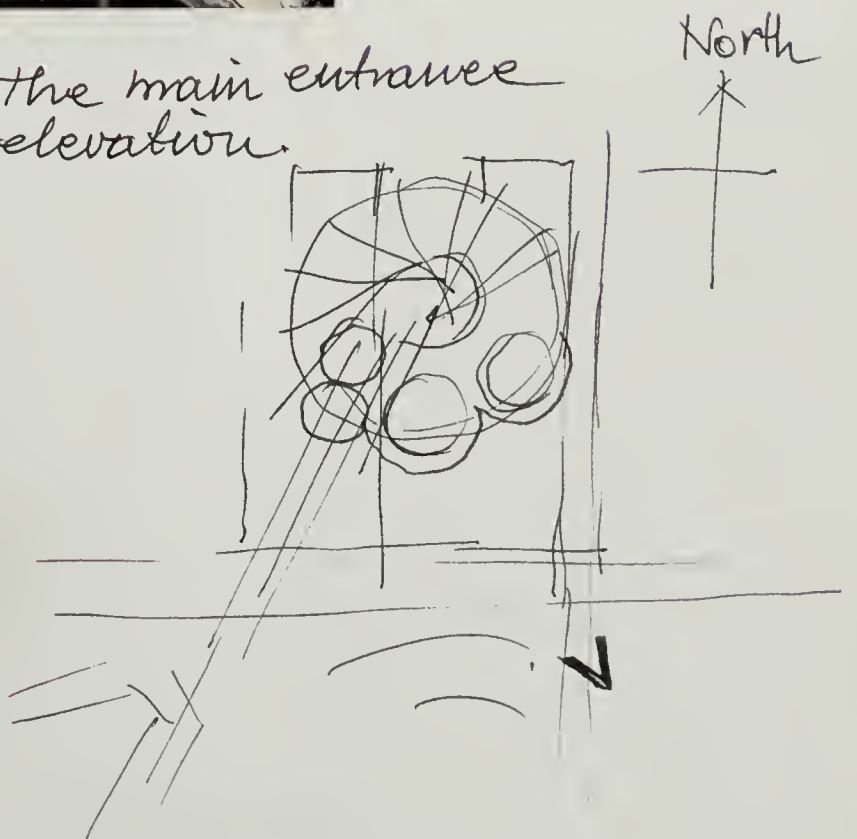 the main entrance
elevation.
North